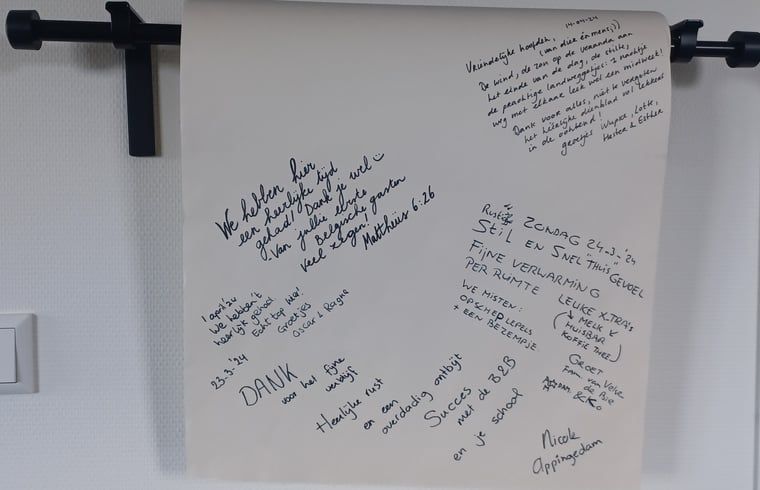 14-04-'24
Vriendelijke hoofden,
(van dier én mens;))
De wind, de zon op de veranda aan
het einde van de dag, de stilte,
de prachtige landweggetjes: 1 nachtje
weg met elkaar leek wel een midweek!
Dank voor alles, niet te vergeten
het heerlijke dienblad vol lekkers
in de ochtend!
groetjes Wupke, Lotte,
Hester & Esther
We hebben hier
een heerlijke tijd
gehad! Dank je wel
- Van jullie eerste
Belgische gasten
veel zegen!
Mattheus 6:26
Rustig
ZONDAG 24-3-'24
Stil EN SNEL "THUIS" GEVOEL
FIJNE VERWARMING
PER RUIMTE
LEUKE X-TRA'S
(↓ MELK
HUISBAR
KOFFIE THEE)
WE MISTEN:
OPSCHEPLEPELS
+ EEN BEZEMPJE
GROET
FAM van
de
1 april '24
We hebben 't
heerlijk gehad
Echt top hier!
Groetjes
Oscar & Ragna
23-3-'24
DANK
voor het fijne
verblijf
Heerlijke rust
en een
overdadig ontbijt
Succes
met de B&B
en je school
Nicole
Appingedam